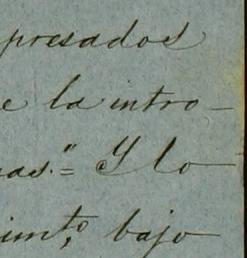 presados
e la intro-
as." = Y lo
imto, bajo